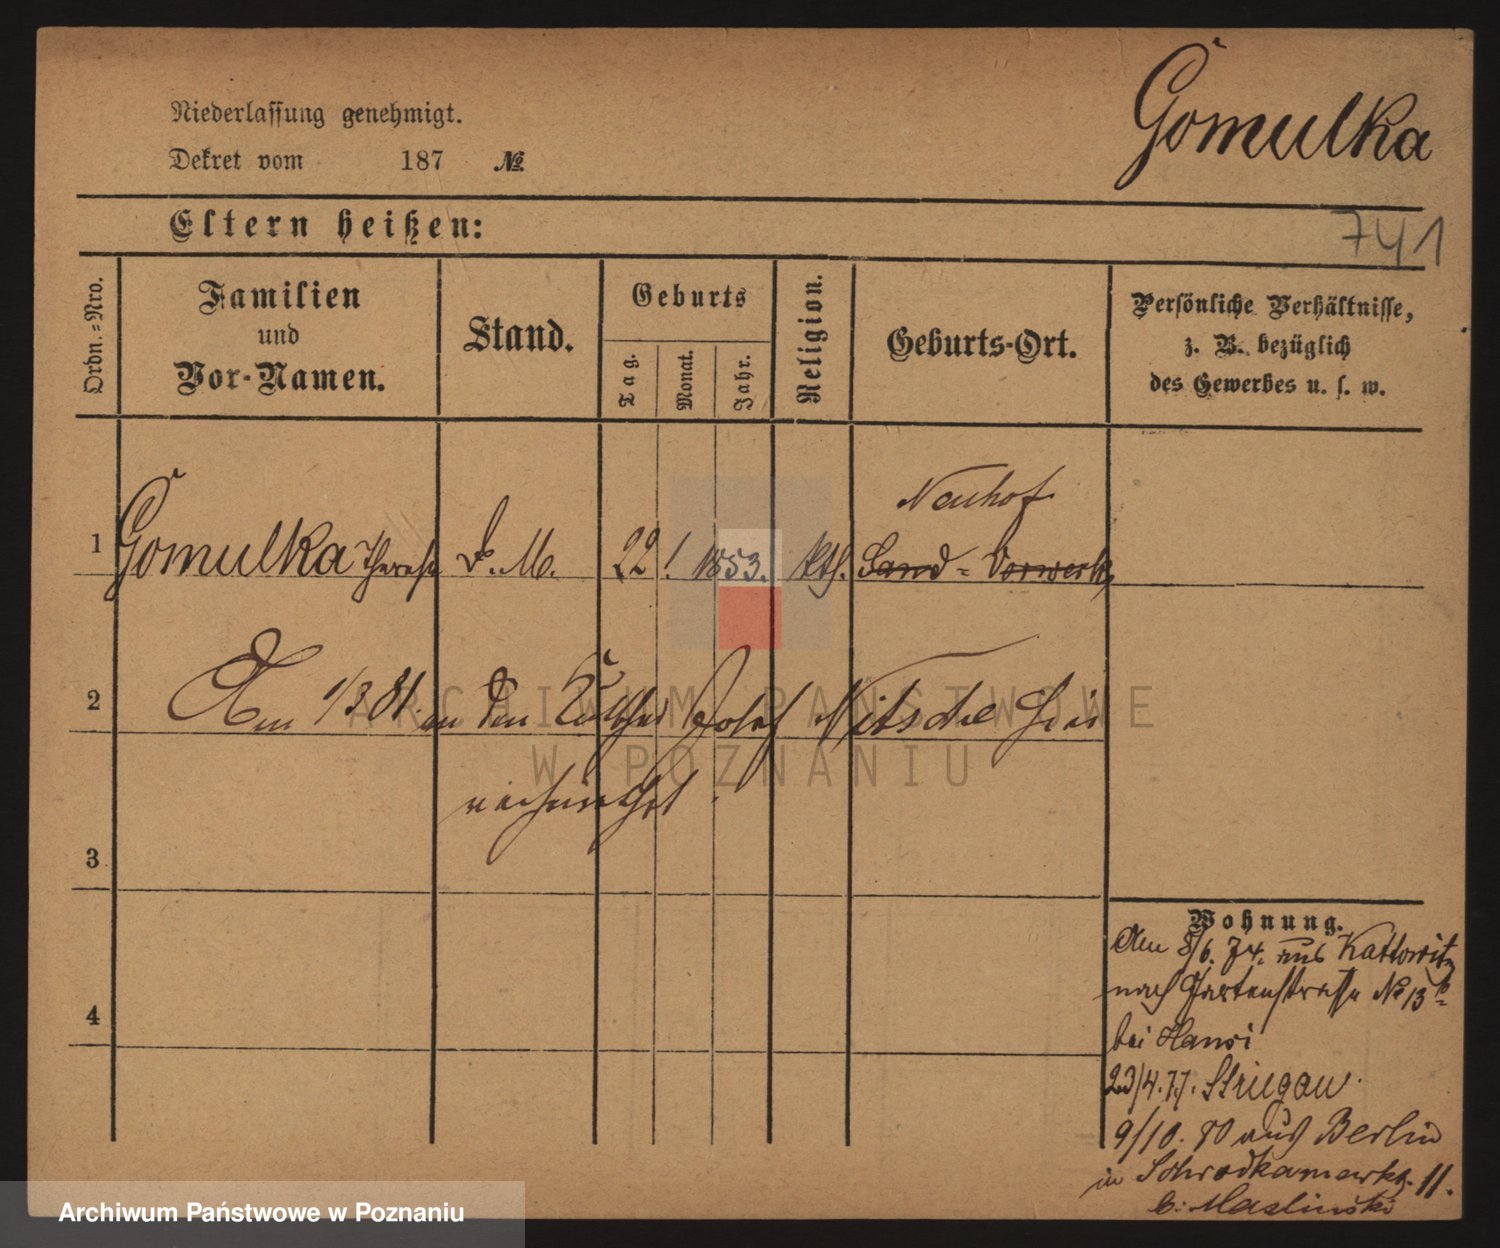 Gomulka
Niederlassung genehmigt.
Dekret vom 187 №
Eltern heißen:
741
Ordn.-Nro.
Familien
und
Vor-Namen.
Stand.
Geburts
Tag.
Monat.
Jahr.
Religion.
Geburts-Ort.
Persönliche Verhältnisse,
z. B. bezüglich
des Gewerbes u. s. w.
Neuhof
1 Gomulka Therese D. M. 22 1 1853. kth. Sand-Vorwerk
2 Am 1/3 81 an den Josef Nitsche hier
verheirathet.
3
4
Wohnung.
Am 8/6. 74. aus Kattowitz
nach Gartenstrasse No 13b
bei
23/4.77. Striegau.
9/10. 80 aus Berlin
in Schrodkamarkt 11.
b: Maslinski
ARCHIWUM PAŃSTWOWE
W POZNANIU
Archiwum Państwowe w Poznaniu